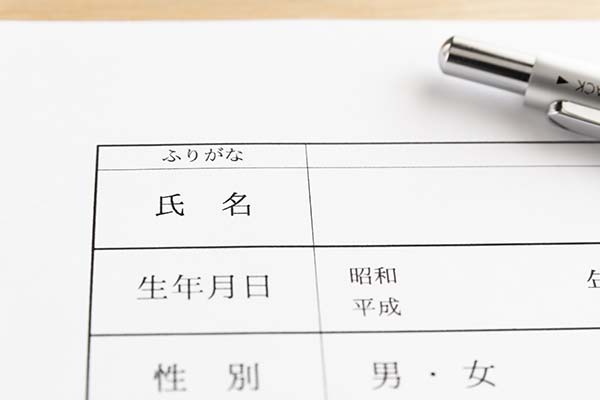 ふりがな
氏 名
生年月日
昭和
平成
性 別
男・女